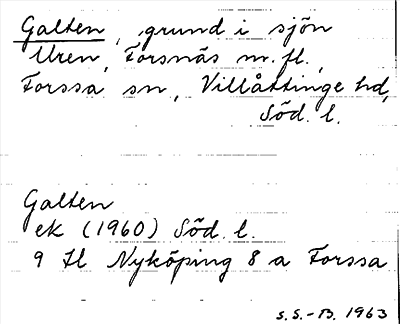 Galten, grund i sjön
Uren, Forsnäs m. fl.,
Forssa sn, Villåttinge hd,
Söd. l.
Galten
ek (1960) Söd. l.
9 H Nyköping 8 a Forssa
S.S.-B. 1963